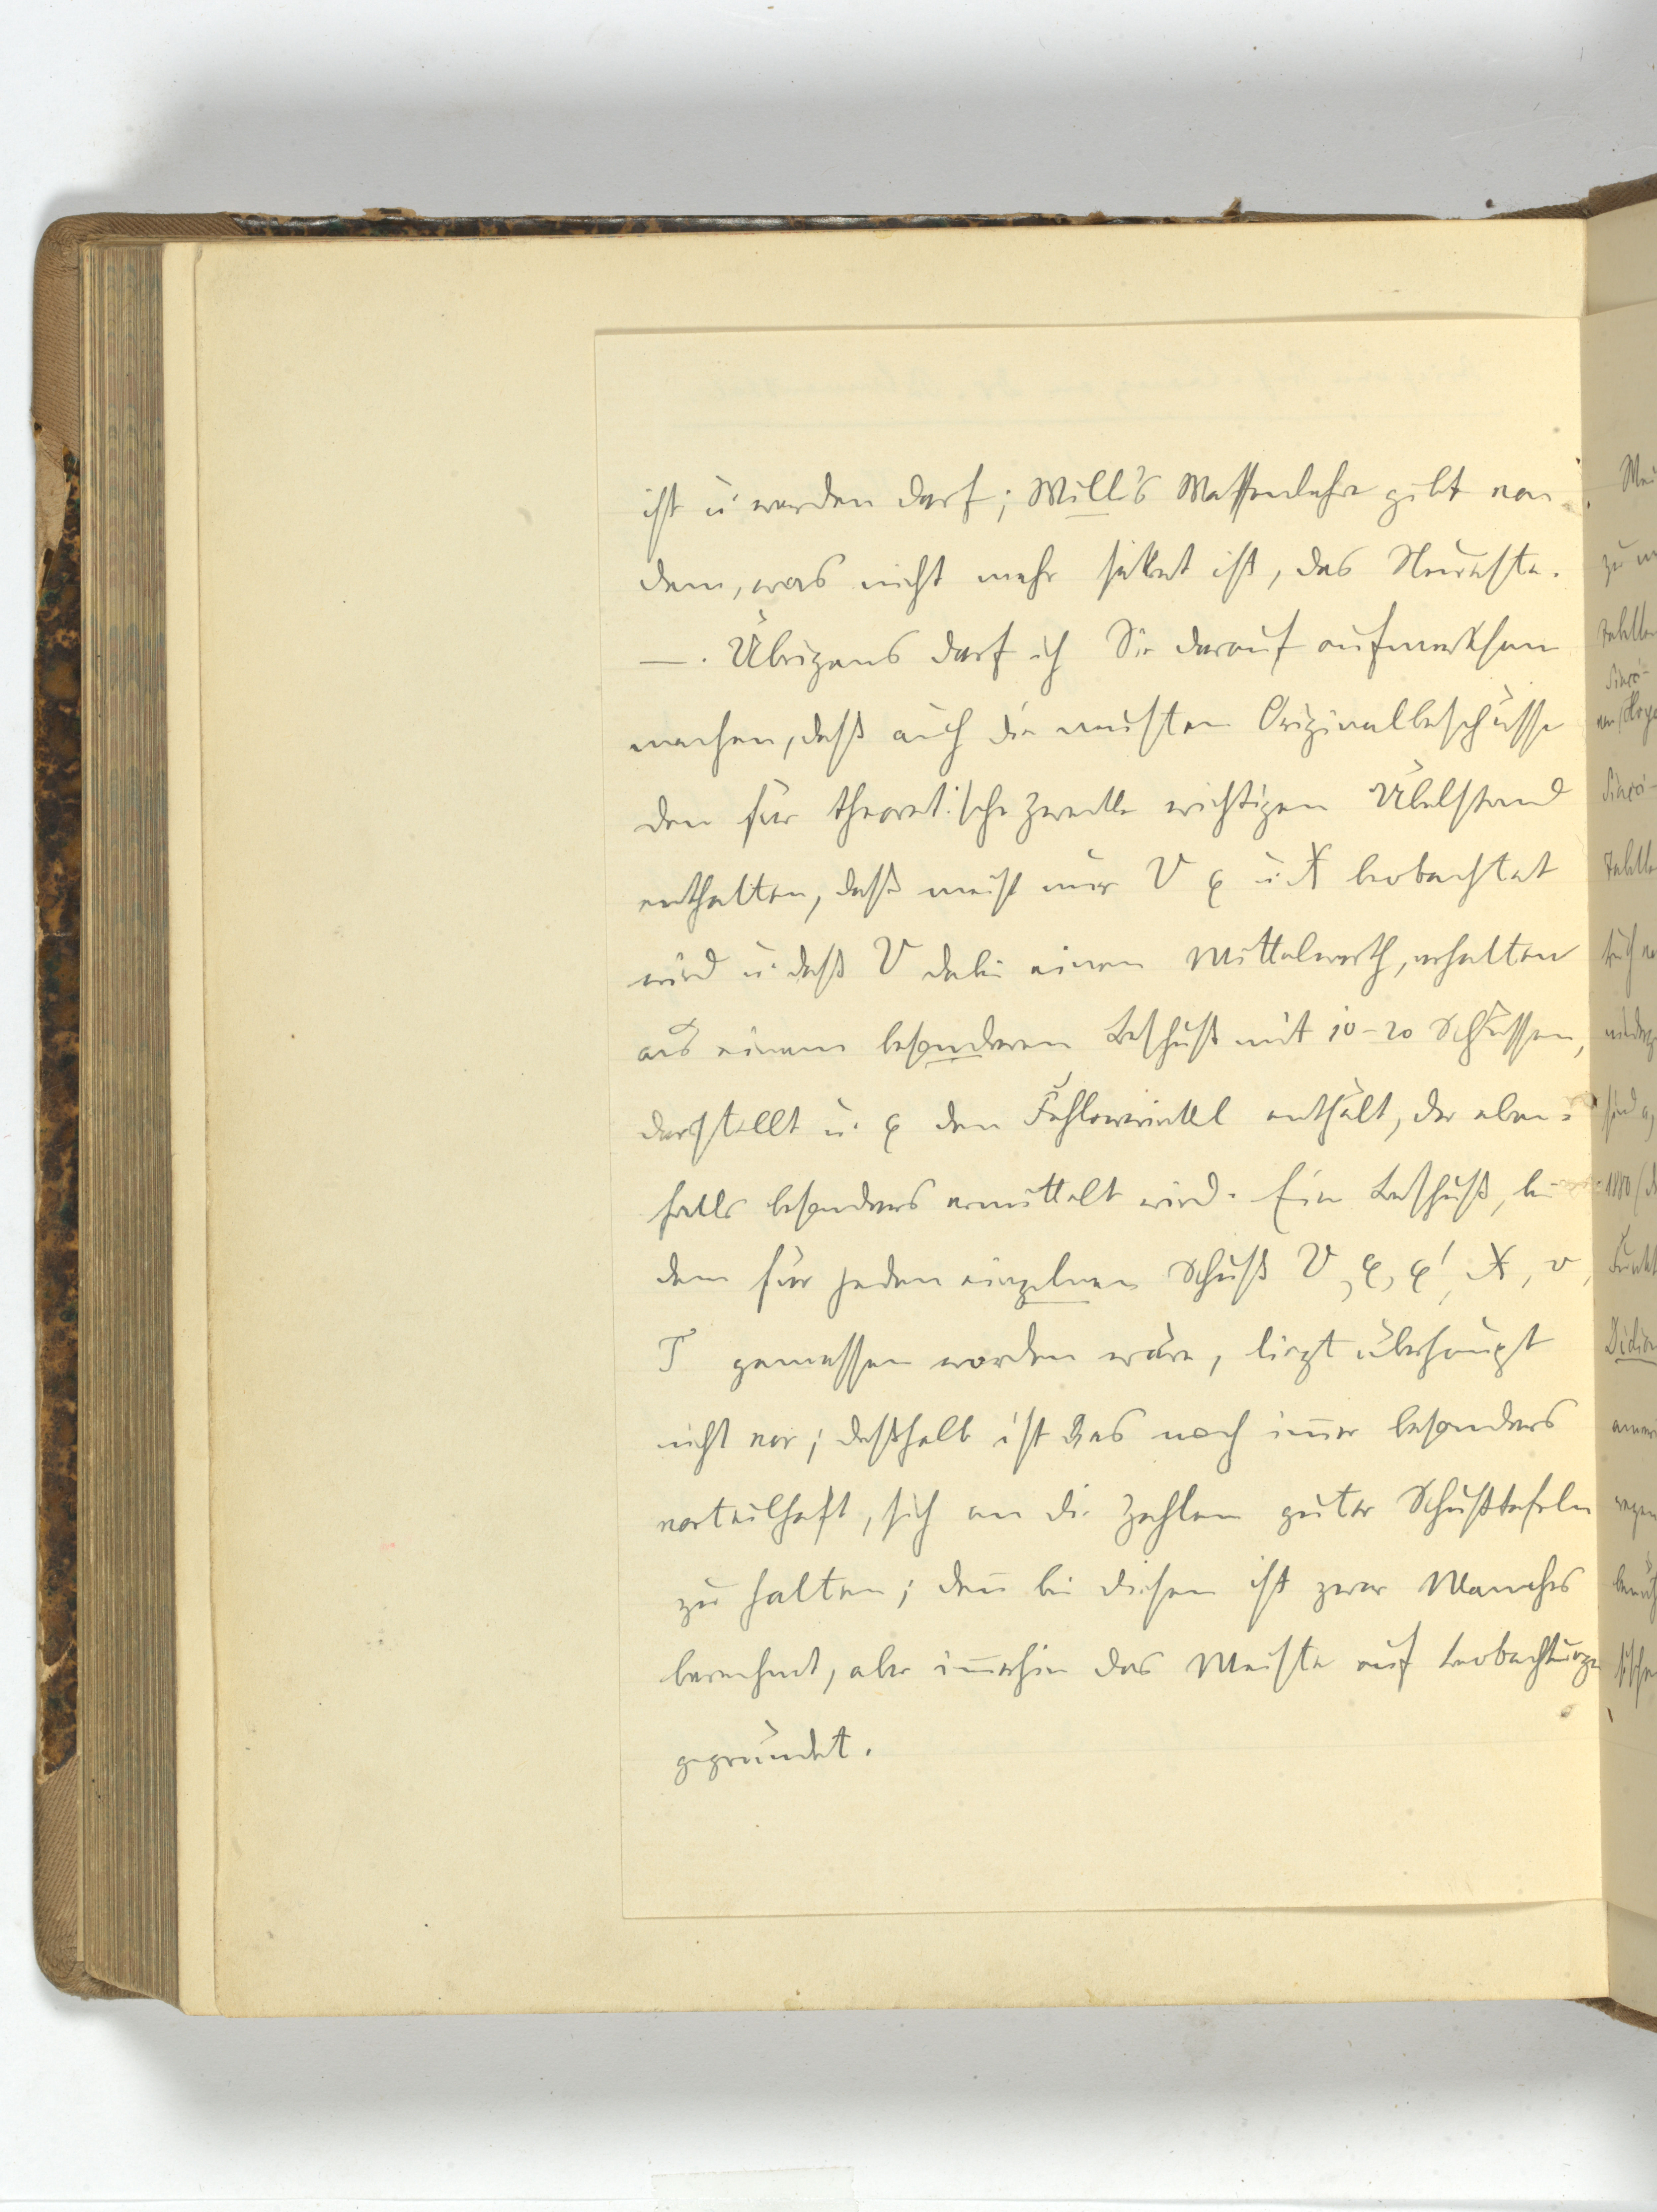 ist u. werden darf; Wille's Waffenlehre gibt von
dem, was nicht mehr sekret ist, das Neueste.
—. Übrigens darf ich Sie darauf aufmerksam
machen, daß auch die meisten Originalbeschüsse
den für theoretische Zwecke wichtigen Übelstand
enthalten, daß meist nur V φ u. X beobachtet
wird u. daß V dabei einen Mittelwerth, erhalten
aus einem besonderen Beschuß mit 10-20 Schüssen,
darstellt u. φ den Fehlerwinkel enthält, der eben-
falls besonders ermittelt wird. Ein Beschuß, bei
dem für jeden einzelnen Schuß V, φ, φ', X, v,
T gemessen worden wäre, liegt überhaupt
nicht vor; deßhalb ist das noch im̄er besonders
vorteilhaft, sich an die Zahlen guter Schußtafeln
zu halten; den̄ bei diesen ist zwar Manches
berechnet, aber im̄erhin das Meiste auf Beobachtungen
gegründet.